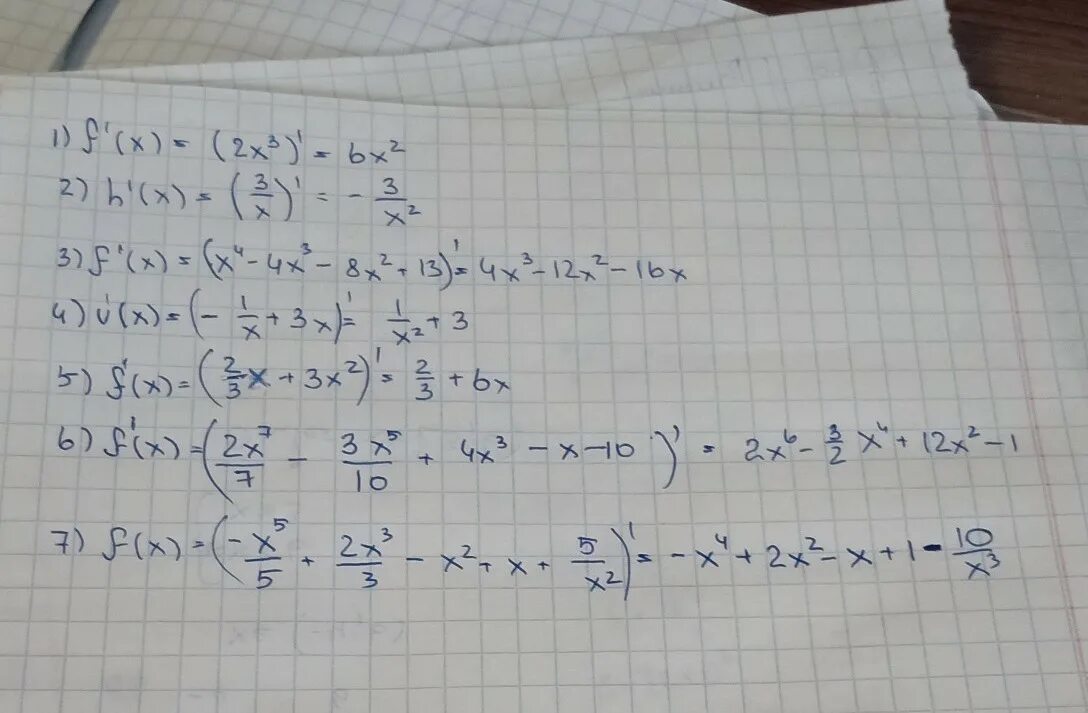 1) f'(x) = (2x³)' = 6x²
2) h'(x) = (3/x)' = - 3/x²
3) f'(x) = (x⁴ - 4x³ - 8x² + 13)' = 4x³ - 12x² - 16x
4) u'(x) = (- 1/x + 3x)' = 1/x² + 3
5) f'(x) = (2/3 x + 3x²)' = 2/3 + 6x
6) f'(x) = (2x⁷/7 - 3x⁵/10 + 4x³ - x - 10)' = 2x⁶ - 3/2 x⁴ + 12x² - 1
7) f(x) = (-x⁵/5 + 2x³/3 - x² + x + 5/x²)' = -x⁴ + 2x² - x + 1 - 10/x³